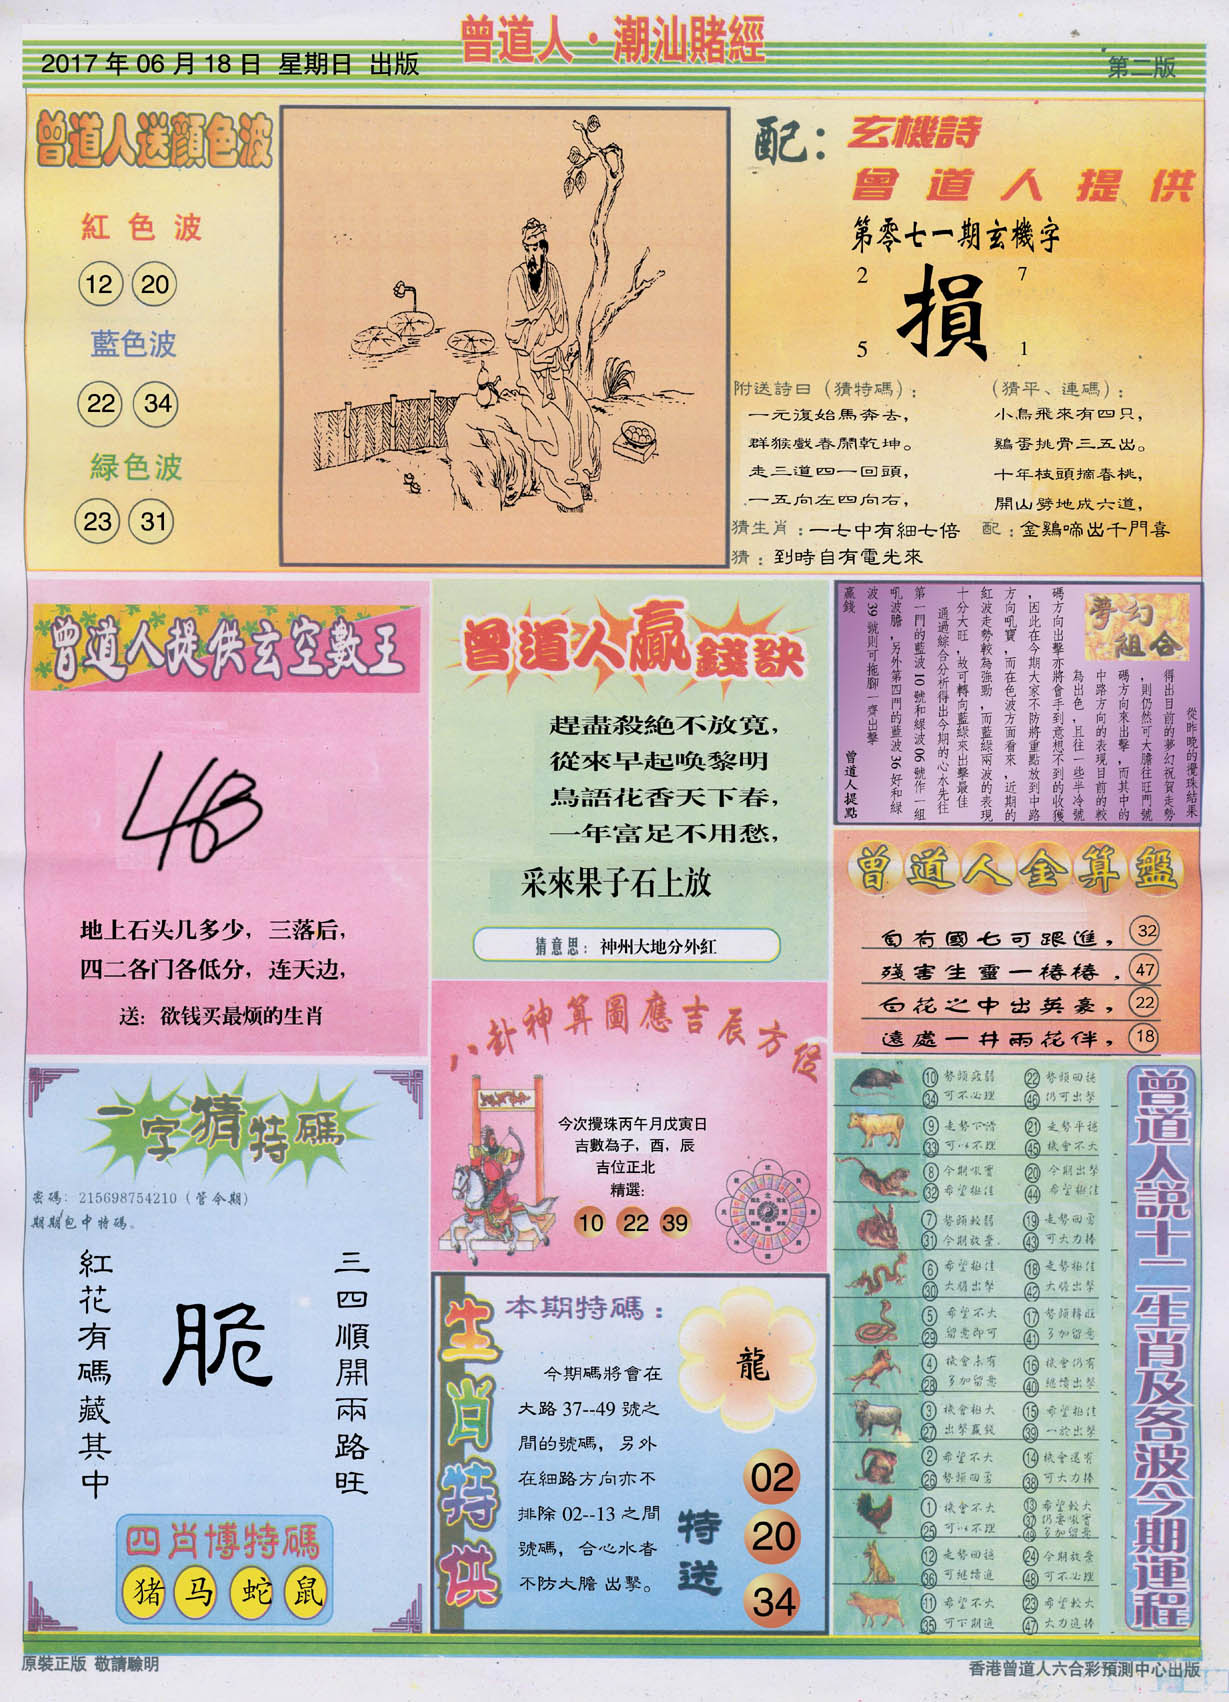 曾道人·潮汕賭經
2017 年 06 月 18 日 星期日 出版
第二版
曾道人送顔色波
紅色波
12 20
藍色波
22 34
緑色波
23 31
配：玄機詩
曾道人提供
第零七一期玄機字
2 7
損
5 1
附送詩曰（猜特碼）：
一元復始馬奔去，
群猴戲春鬧乾坤。
走三道四一回頭，
一五向左四向右，
（猜平、連碼）：
小鳥飛來有四只，
鷄蛋挑骨三五出。
十年枝頭摘春桃，
開山劈地成六道，
猜生肖：一七中有細七倍
配：金鷄啼出千門喜
猜：到時自有電光來
曾道人提供玄空數王
地上石头几多少，三落后，
四二各门各低分，连天边，
送：欲钱买最烦的生肖
曾道人贏錢訣
趕盡殺絶不放寬，
從來早起唤黎明
鳥語花香天下春，
一年富足不用愁，
采來果子石上放
猜意思：神州大地分外紅
夢幻
組合
從昨晚的攪珠結果
得出目前的夢幻祝賀走勢
，則仍然可大膽往旺門號
碼方向來出擊，而其中的
中路方向的表現目前的較
為出色，且往一些半冷號
碼方向出擊亦將會手到意想不到的收獲
，因此在今期大家不防將重點放到中路
方向吼寶，而在色波方面看來，近期的
紅波走勢較為強勁，而藍綠兩波的表現
十分大旺，故可轉向藍綠來出擊最佳
通過綜合分析得出今期的心水先往
第一門的藍波 10 號和綠波 06 號作一組
吼波膽，另外第四門的藍波 36 好和綠
波 39 號則可拖腳一齊出擊
贏錢
曾道人提點
曾道人金算盤
自有國七可跟進， 32
殘害生靈一樁樁． 47
百花之中出英豪， 22
遠處一井兩花伴， 18
八卦神算圖應吉辰方位
今次攪珠丙午月戊寅日
吉數為子，酉，辰
吉位正北
精選：
10 22 39
一字猜特碼
密碼：215698754210（管令期）
期期包中特碼。
三四順開兩路旺
脆
紅花有碼藏其中
四肖博特碼
猪 马 蛇 鼠
生肖特供
本期特碼：
龍
今期碼將會在
大路 37--49 號之
間的號碼，另外
在細路方向亦不
排除 02--13 之間
號碼，合心水者
不防大膽 出擊。
特送
02
20
34
曾道人説十二生肖及各波今期運程
10 勢頭疲弱 22 勢頭回穩
34 可不必理 46 仍可出擊
9 走勢下滑 21 走勢平穩
33 可以不理 45 機會不大
8 今期吼寶 20 今期出擊
32 希望極佳 44 希望極佳
7 勢頭較弱 19 走勢回勇
31 今期放棄 43 可大力捧
6 希望極佳 18 走勢極佳
30 大膽出擊 42 大膽出擊
5 希望不大 17 勢頭轉旺
29 留意即可 41 多加留意
4 機會未有 16 機會仍有
28 多加留意 40 繼續出擊
3 機會極大 15 希望極佳
27 出擊贏錢 39 一於出擊
2 希望不大 14 機會還有
26 勢頭回勇 38 可大力捧
1 機會不大 13 希望較大
25 可以不理 37 仍要吼實
49 多加留意
12 走勢回穩 24 今期放棄
36 可繼續追 48 可不必理
11 希望不大 23 希望較大
35 可下期追 47 大力追捧
原裝正版 敬請驗明
香港曾道人六合彩預測中心出版